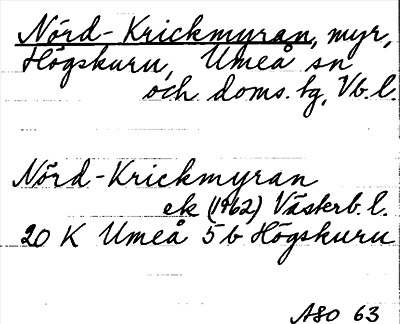 Nörd-Krickmyran, myr,
Högskuru, Umeå sn
och doms. hg, Vb. l.
Nörd-Krickmyran
ek (1962) Västerb. l.
20 K Umeå 5 b Högskuru
ASO 63